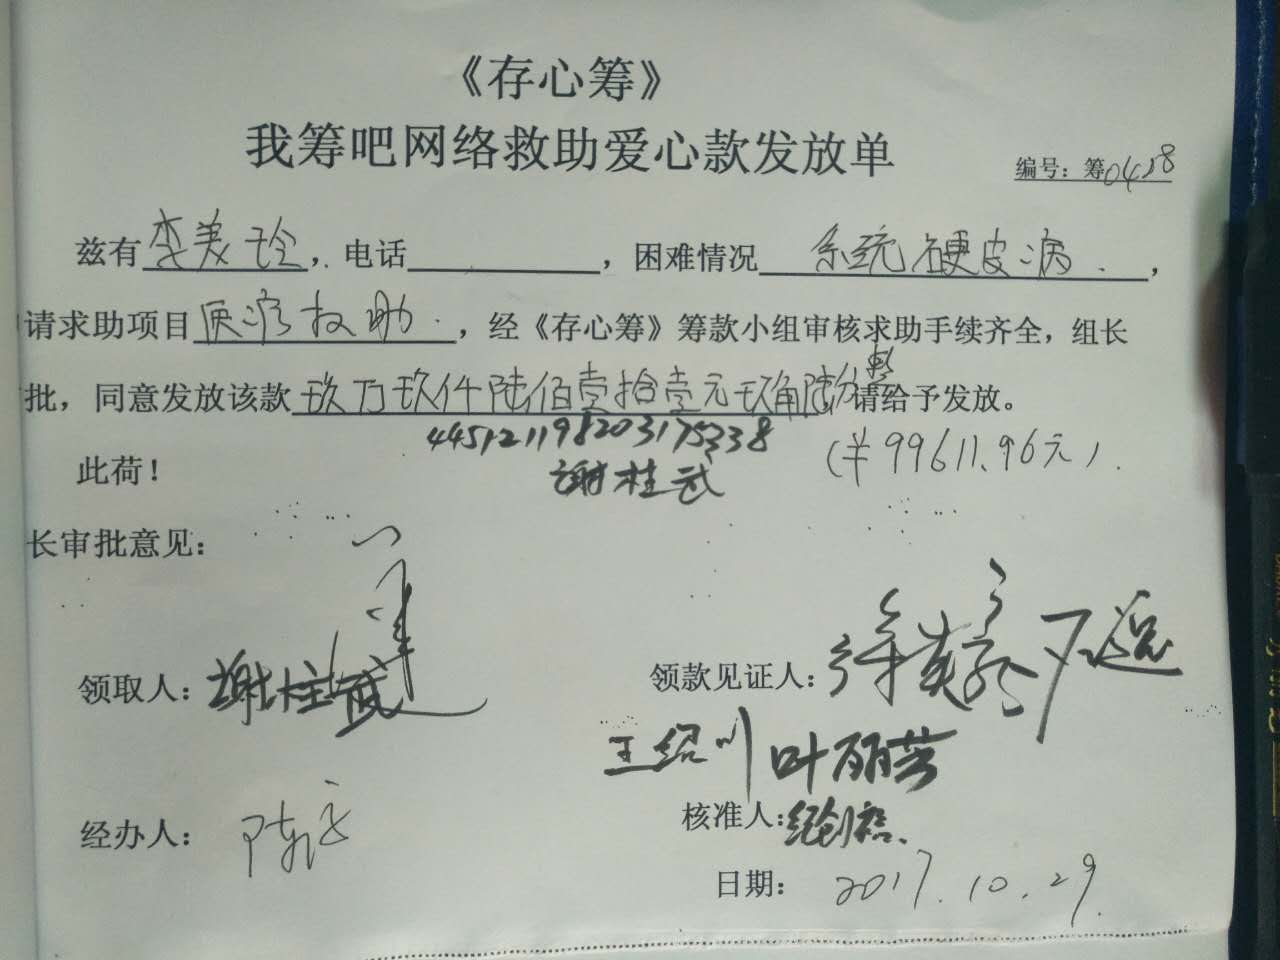 《存心筹》
我筹吧网络救助爱心款发放单
编号：筹0458
兹有李美玲，电话，困难情况系统硬皮病.，
请求助项目医疗救助.，经《存心筹》筹款小组审核求助手续齐全，组长
批，同意发放该款玖万玖仟陆佰壹拾壹元玖角陆分整请给予发放。
445121198203175338
(￥99611.96元).
此荷！
谢桂武
长审批意见：
领取人：谢桂武
领款见证人：
王绍川 叶丽芸
核准人：
经办人：
日期：2017.10.29.